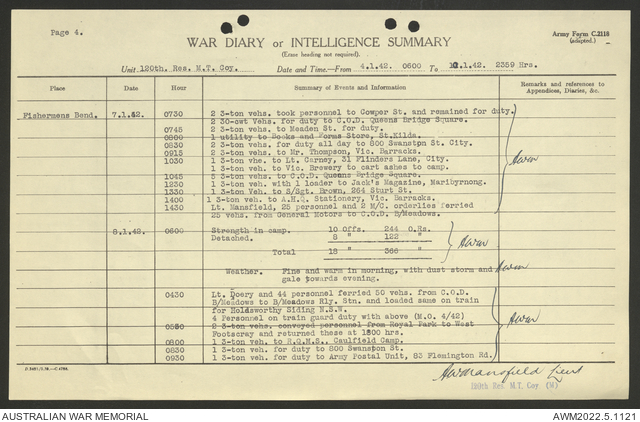 Page 4.
Army Form C.2118
(adapted.)
WAR DIARY or INTELLIGENCE SUMMARY
(Erase heading not required).
Unit 120th. Res. M.T. Coy. Date and Time.—From 4.1.42. 0600 To 10.1.42. 2359 Hrs.
Place Date Hour Summary of Events and Information Remarks and references to
Appendices, Diaries, &c.
Fishermens Bend. 7.1.42. 0730 2 3-ton vehs. took personnel to Cowper St. and remained for duty.
2 30-cwt Vehs. for duty to C.O.D. Queens Bridge Square.
0745 2 3-ton vehs. to Meaden St. for duty.
0800 1 utility to Books and Forms Store, St.Kilda.
0830 2 3-ton vehs. for duty all day to 800 Swanston St. City.
0915 2 3-ton vehs. to Mr. Thompson, Vic. Barracks.
1030 1 3-ton vhe. to Lt. Carney, 31 Flinders Lane, City.
1 3-ton veh. to Vic. Brewery to cart ashes to camp.
1045 3 3-ton vehs. to C.O.D. Queens Bridge Square.
1230 1 3-ton veh. with 1 loader to Jack's Magazine, Maribyrnong.
1330 1 3-ton Veh. to S/Sgt. Brown, 264 Sturt St.
1400 1 3-ton veh. to A.H.Q. Stationery, Vic. Barracks.
1430 Lt. Mansfield, 25 personnel and 2 M/C. orderlies ferried
25 vehs. from General Motors to C.O.D. B/Meadows.
8.1.42. 0600 Strength in camp. 10 Offs. 244 O.Rs.
Detached. 8 " 122 "
Total 18 " 366 "
Weather. Fine and warm in morning, with dust storm and
gale towards evening.
0430 Lt. Doery and 44 personnel ferried 50 vehs. from C.O.D.
B/Meadows to B/Meadows Rly. Stn. and loaded same on train
for Holdsworthy Siding N.S.W.
4 Personnel on train guard duty with above (M.O. 4/42)
0550 2 3-ton vehs. conveyed personnel from Royal Park to West
Footscray and returned these at 1800 hrs.
0800 1 3-ton veh. to R.Q.M.S., Caulfield Camp.
0830 1 3-ton veh. for duty to 800 Swanston St.
0930 1 3-ton veh. for duty to Army Postal Unit, 83 Flemington Rd.
Mansfield Lieut
120th Res. M.T. Coy (M)
AUSTRALIAN WAR MEMORIAL AWM2022.5.1121